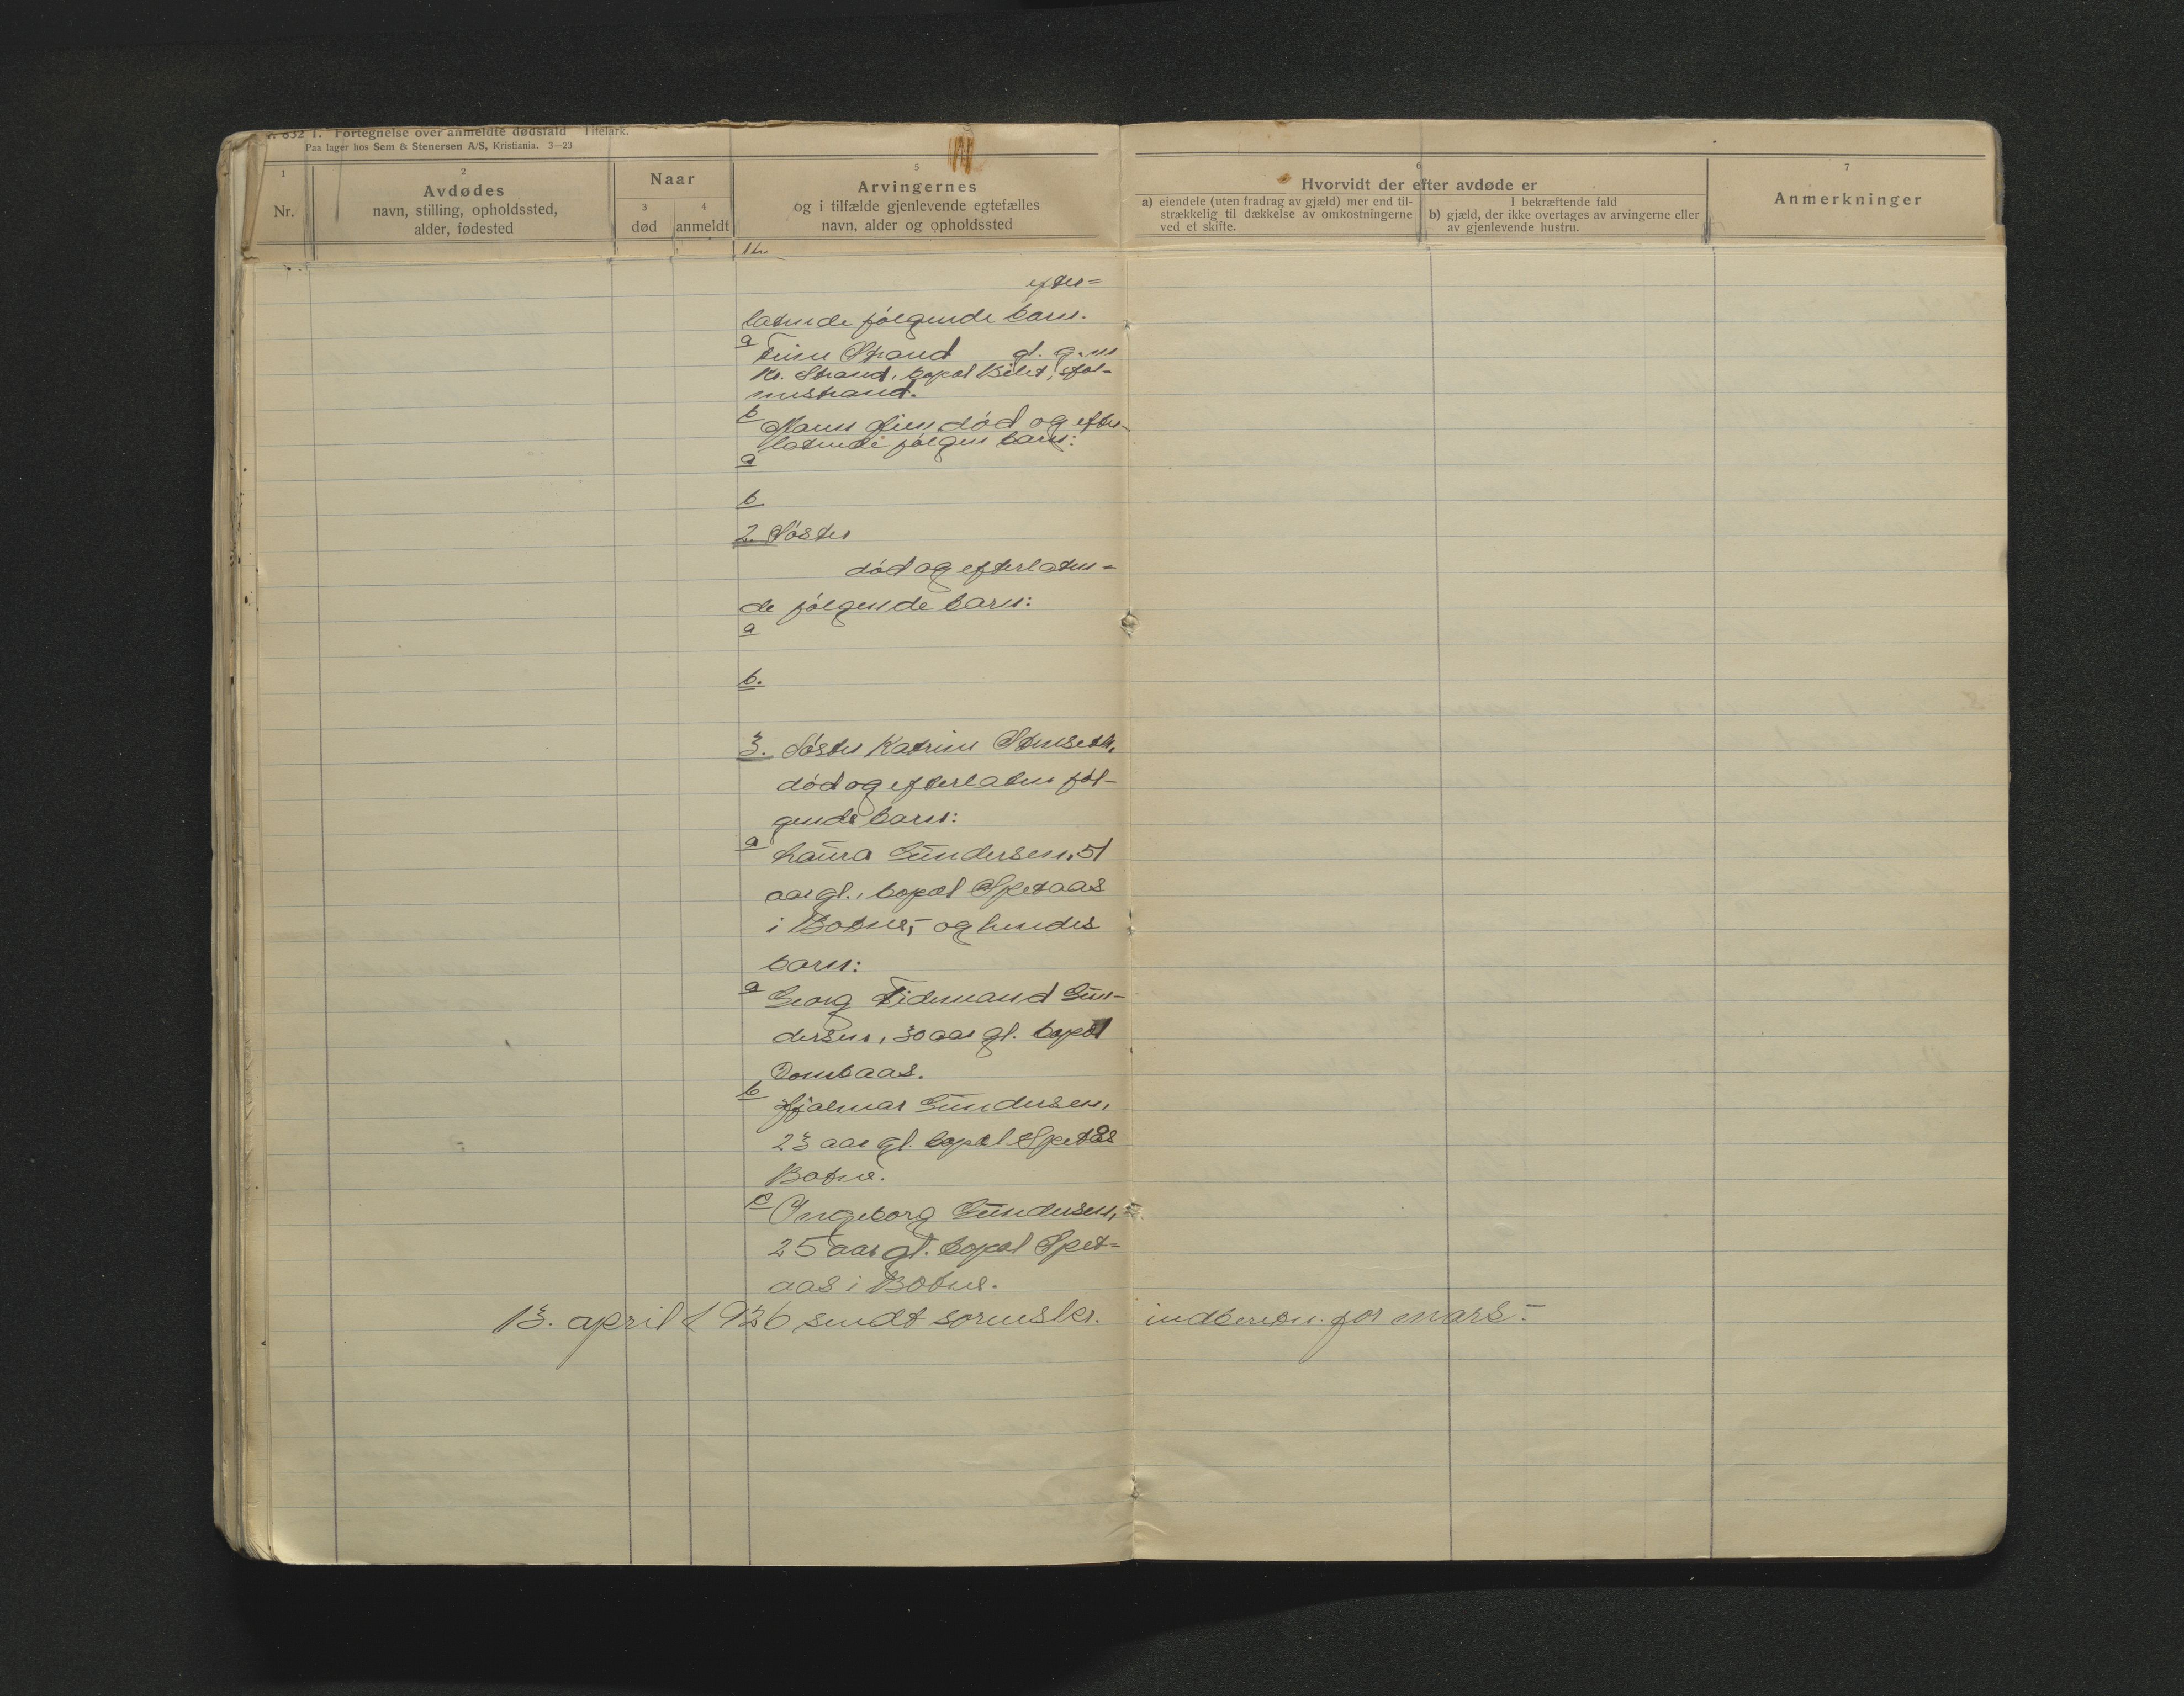 832 1. Fortegnelse over anmeldte dødsfald Titelark.
Paa lager hos Sem & Stenersen A/S, Kristiania. 3—23
1
Nr.
2
Avdødes
navn, stilling, opholdssted,
alder, fødested
Naar
3
død
4
anmeldt
5
Arvingernes
og i tilfælde gjenlevende egtefælles
navn, alder og opholdssted
6
Hvorvidt der efter avdøde er
a) eiendele (uten fradrag av gjæld) mer end til-
strækkelig til dækkelse av omkostningerne
ved et skifte.
I bekræftende fald
b) gjæld, der ikke overtages av arvingerne eller
av gjenlevende hustru.
7
Anmerkninger
efter=
latende følgende barn.
a
Strand gl. g. m
Kr. Strand, bopæl Hol-
mestrand.
b
død og efter-
latende følgen barn:
a
b
2. Søster
død og efterlaten-
de følgende barn:
a
b.
3. Søster Katrine Stenseth,
død og efterlaten føl-
gende barn:
a
Laura Gundersen, 51
aar gl., bopæl Spetaas
i Botne, og hendes
barn:
a
Georg Tidemand Gun-
dersen, 30 aar gl. bopæl
Dombaas.
b
Hjalmar Gundersen,
23 aar gl. bopæl Spetås
Botne.
c
Ingeborg Gundersen,
25 aar gl. bopæl Spet-
aas i Botne.
13. april 1926 sendt sorenskr. indberetn. for mars.-